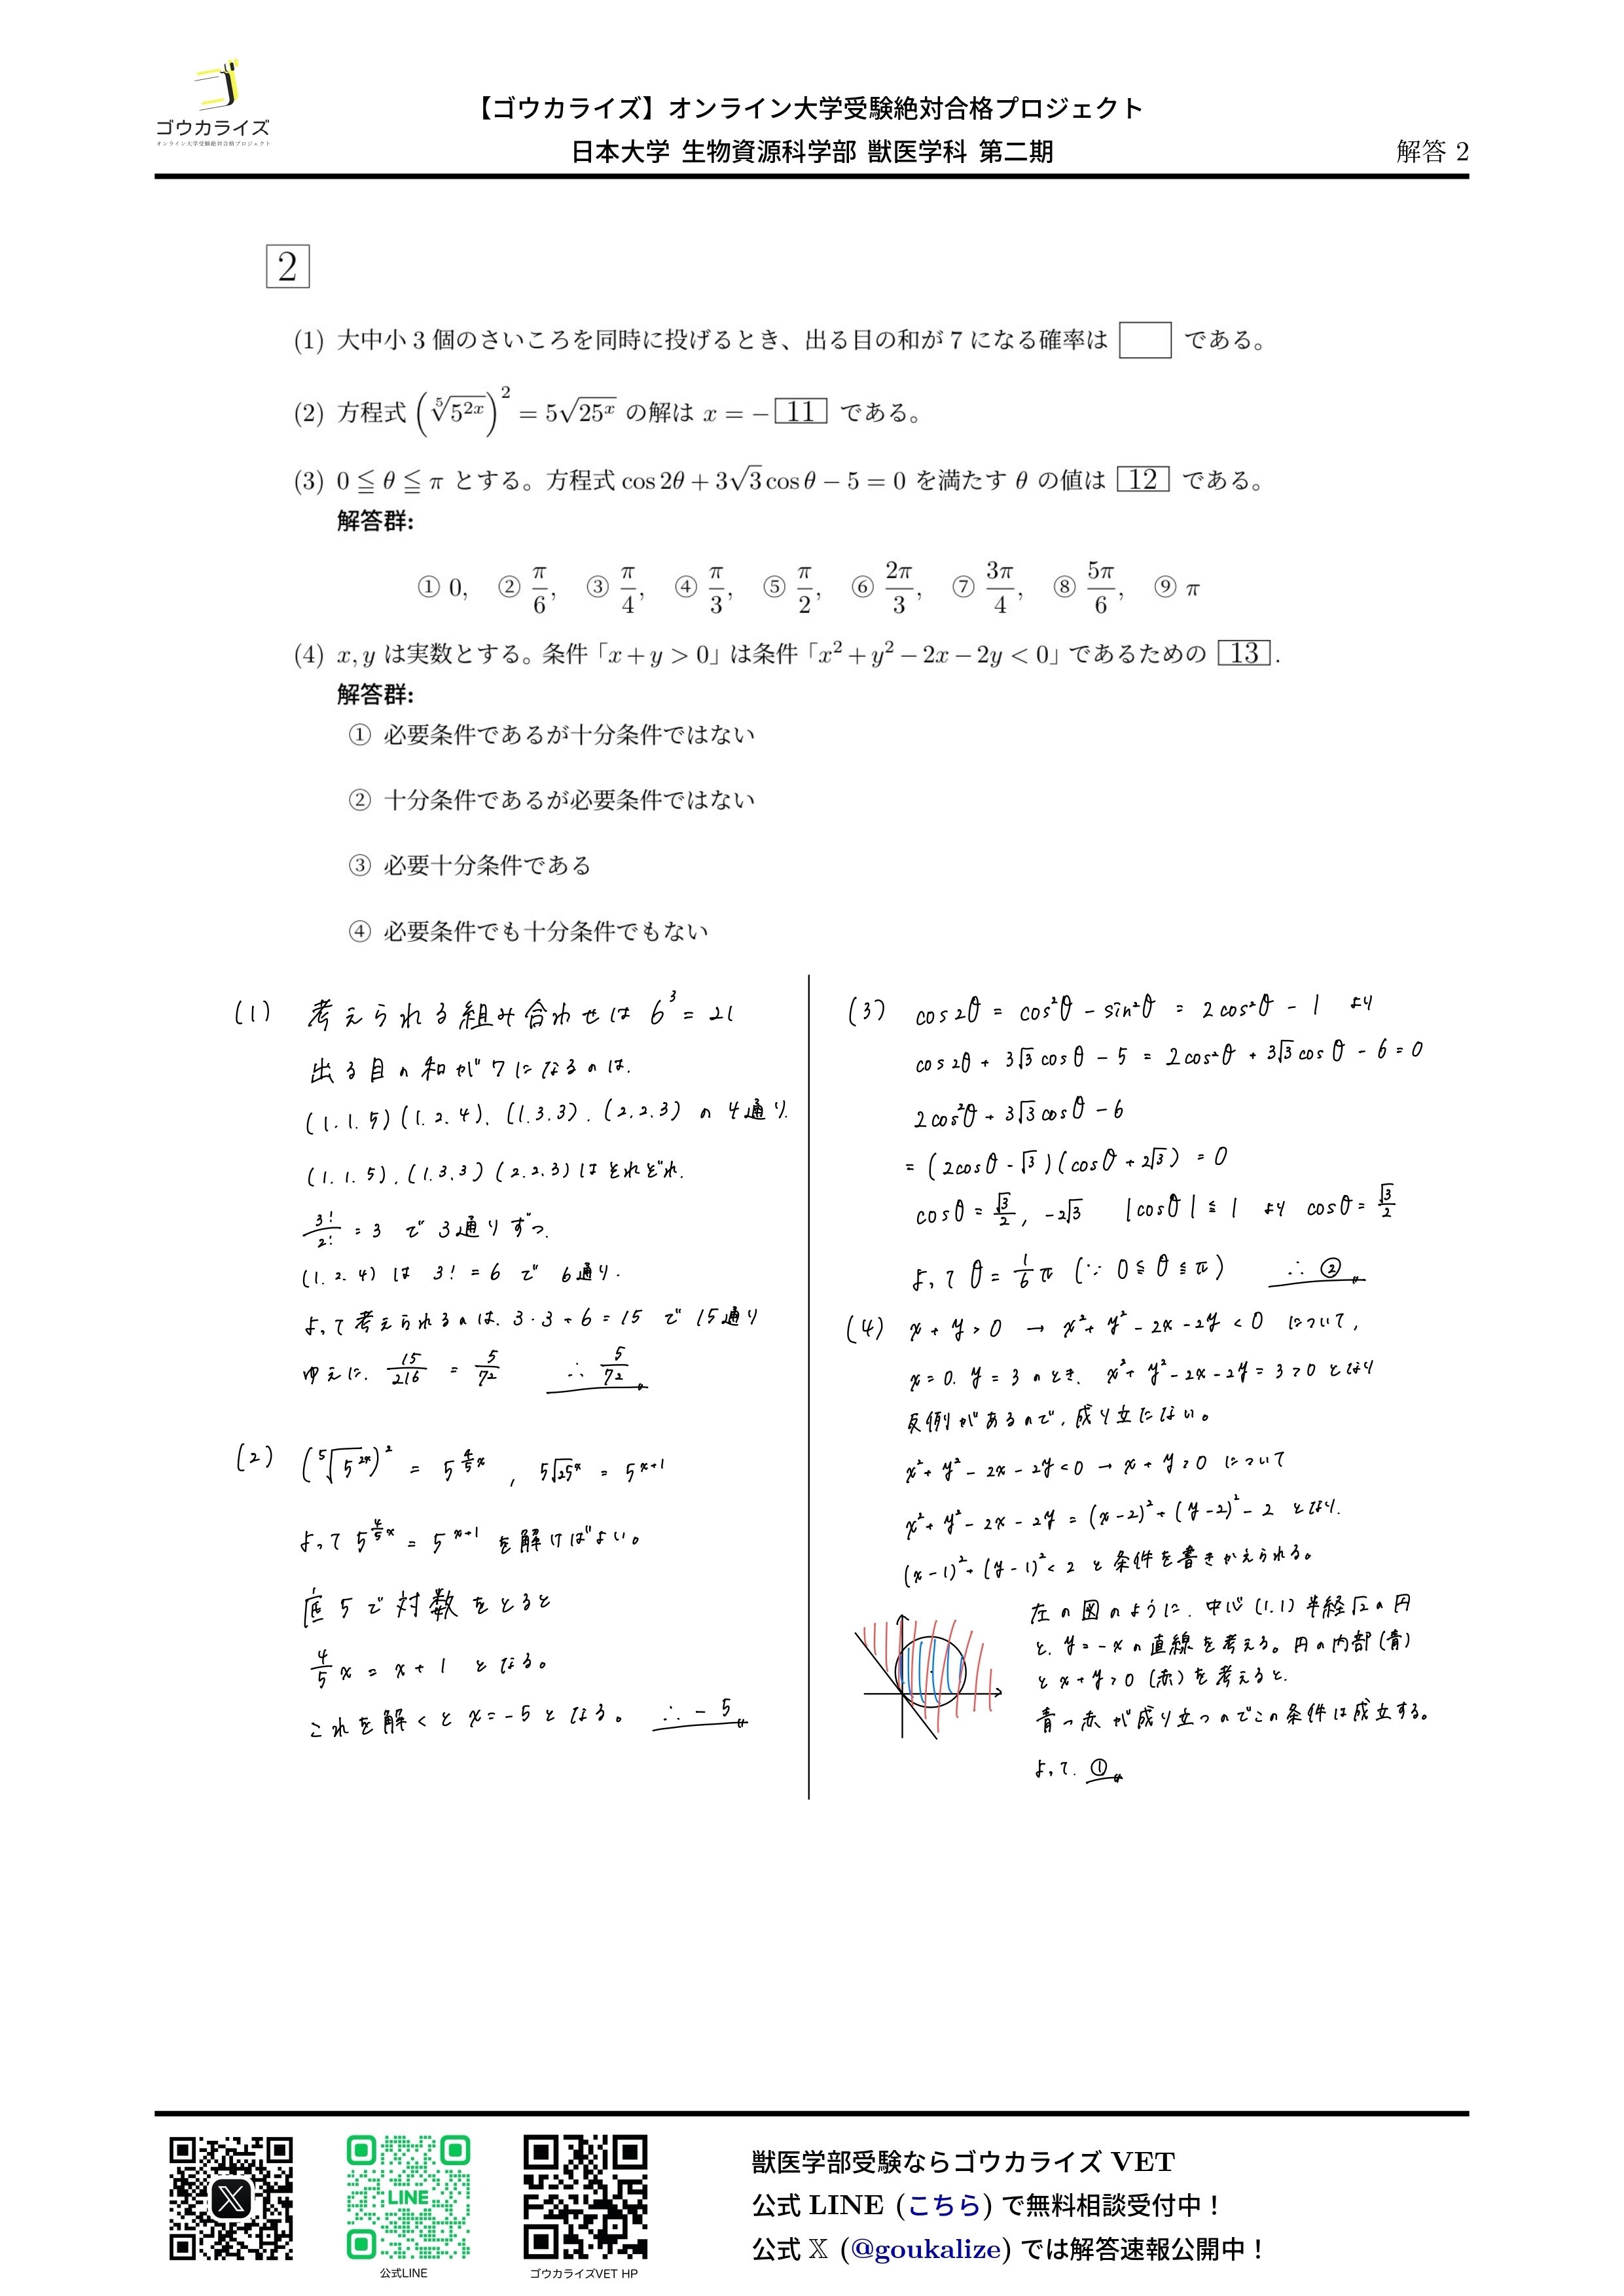 ゴウカライズ
オンライン大学受験絶対合格プロジェクト
【ゴウカライズ】オンライン大学受験絶対合格プロジェクト
日本大学 生物資源科学部 獣医学科 第二期
解答 2
2
(1) 大中小 3 個のさいころを同時に投げるとき、出る目の和が 7 になる確率は □ である。
(2) 方程式 (⁵√5^{2x})² = 5√25^x の解は x = −11 である。
(3) 0 ≦ θ ≦ π とする。方程式 cos 2θ + 3√3 cos θ − 5 = 0 を満たす θ の値は 12 である。
解答群:
① 0, ② π/6, ③ π/4, ④ π/3, ⑤ π/2, ⑥ 2π/3, ⑦ 3π/4, ⑧ 5π/6, ⑨ π
(4) x, y は実数とする。条件「x + y > 0」は条件「x² + y² − 2x − 2y < 0」であるための 13 .
解答群:
① 必要条件であるが十分条件ではない
② 十分条件であるが必要条件ではない
③ 必要十分条件である
④ 必要条件でも十分条件でもない
(1) 考えられる組み合わせは 6³ = 21
出る目の和が7になるのは.
(1.1.5)(1.2.4).(1.3.3).(2.2.3) の 4通り.
(1.1.5).(1.3.3)(2.2.3)はそれぞれ.
3!/2! = 3 で 3通りずつ.
(1.2.4) は 3! = 6 で 6通り.
よって考えられるのは. 3・3+6 = 15 で 15通り
ゆえに. 15/216 = 5/72 ∴ 5/72
(2) (⁵√5^{2x})² = 5^{4/5 x} , 5√25^x = 5^{x+1}
よって 5^{4/5 x} = 5^{x+1} を解けばよい。
底5で対数をとると
4/5 x = x + 1 となる。
これを解くと x = -5 となる。 ∴ -5
(3) cos2θ = cos²θ - sin²θ = 2cos²θ - 1 より
cos2θ + 3√3 cosθ - 5 = 2cos²θ + 3√3 cosθ - 6 = 0
2cos²θ + 3√3 cosθ - 6
= (2cosθ - √3)(cosθ + 2√3) = 0
cosθ = √3/2 , -2√3 |cosθ| ≦ 1 より cosθ = √3/2
よって θ = 1/6 π (∵ 0 ≦ θ ≦ π) ∴ ②
(4) x + y > 0 → x² + y² - 2x - 2y < 0 について,
x = 0. y = 3 のとき. x² + y² - 2x - 2y = 3 > 0 となり
反例があるので, 成り立たない。
x² + y² - 2x - 2y < 0 → x + y > 0 について
x² + y² - 2x - 2y = (x-2)² + (y-2)² - 2 となり.
(x-1)² + (y-1)² < 2 と条件を書きかえられる。
左の図のように. 中心(1.1)半経√2の円
と. y = -x の直線を考える。円の内部(青)
と x + y > 0 (赤)を考えると.
青⊃赤が成り立つのでこの条件は成立する。
よって. ①
LINE
公式LINE
ゴウカライズVET HP
獣医学部受験ならゴウカライズ VET
公式 LINE (こちら) で無料相談受付中！
公式 𝕏 (@goukalize) では解答速報公開中！